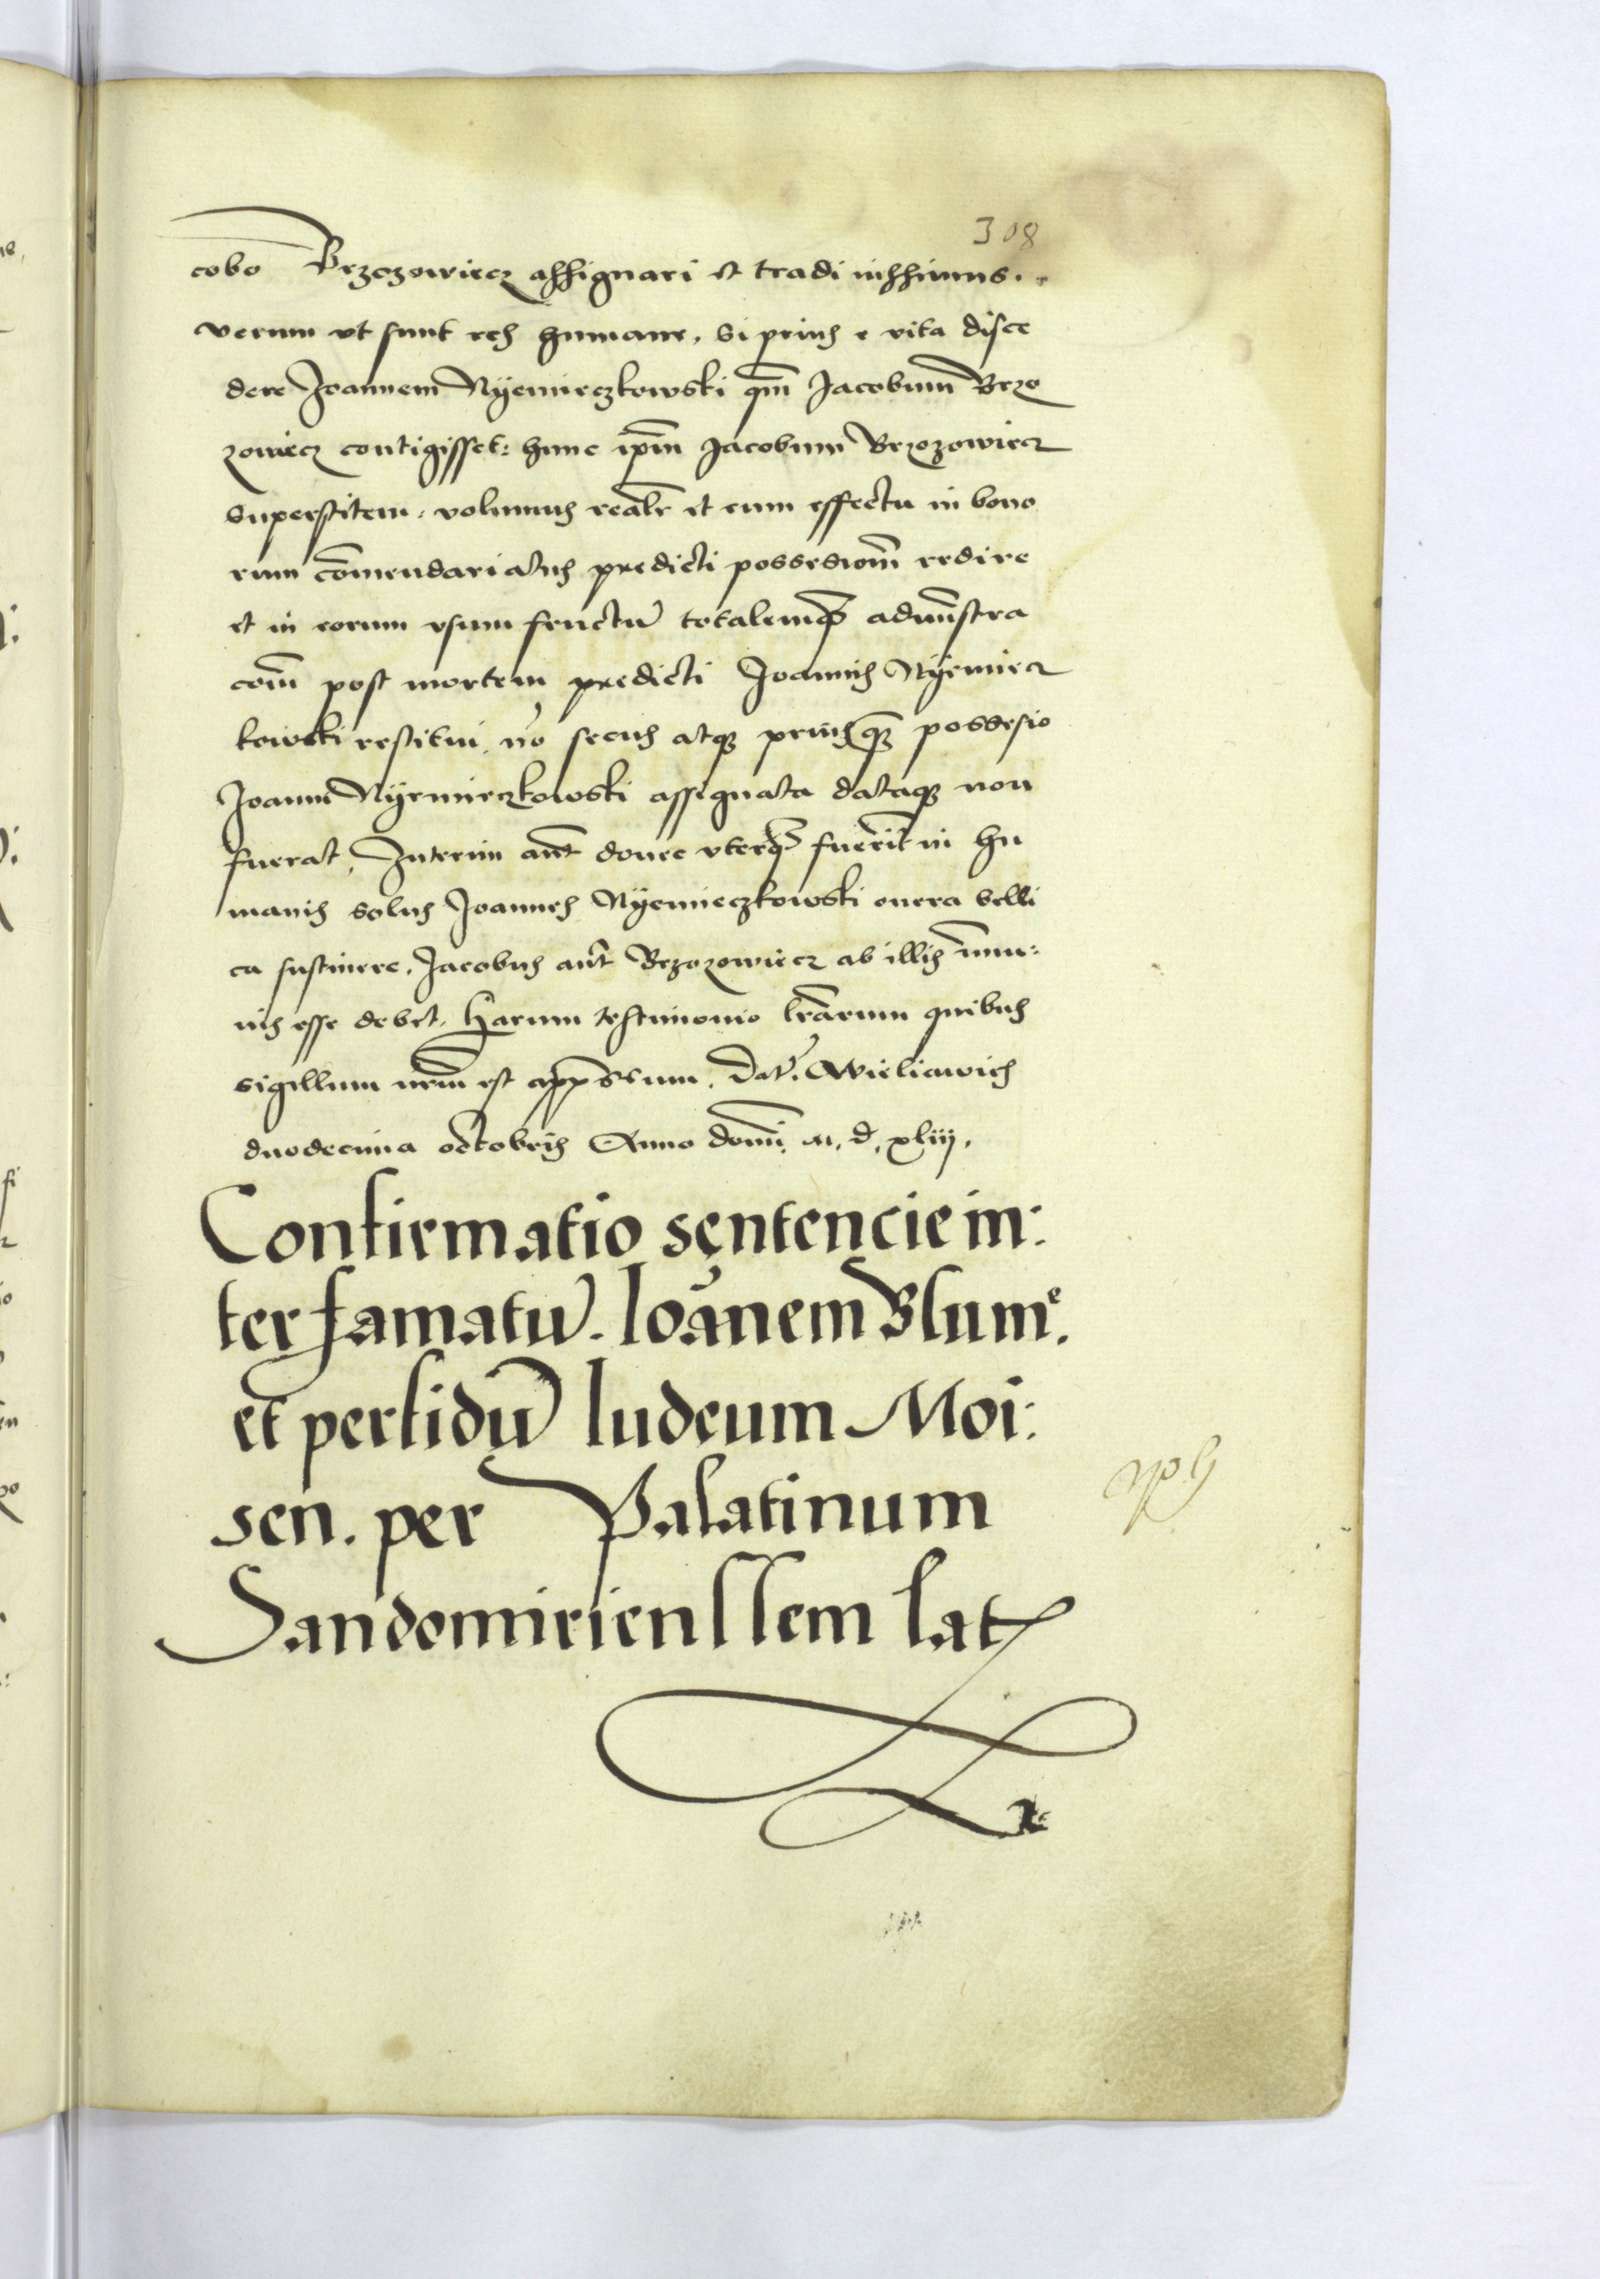 308
cobo Brzozowiecz assignari et tradi iussimus.
verum ut sunt res humane, si prius e vita disce
dere Joannem Nyemieczkowski qm̃ Jacobum Brzo
zowiecz contigisset: hunc ip̃m Jacobum Brzozowiecz
superstitem, volumus realr̃ et cum effectu in bono
rum com̃endariatus predicti possesiom̃ redire
et in eorum usum fructũ totalemq̃ adm̃nstra
com̃ post mortem predicti Joannis Nyemiecz
kowski restitui, nõ secus atq̃ prius q̃ possesio
Joanni Nyemieczkowski assignata dataq̃ non
fuerat, Interim aũt donec uterq̃ fuerit in hu
manis solus Joannes Nyemieczkowski onera belli
ca sustinere, Jacobus aũt Brzozowiecz ab illis im̃u:
nis esse debet. Harum testimonio lr̃arum quibus
sigillum nr̃m est app̃ssum. Dat̃. Wieliczwich
duodecima octobris Anno domĩ. M. d. xliij.
Confirmatio sentencie in:
ter famatũ. Ioãnem Blume.
et perfidũ Iudeum Moi:
sen. per Palatinum
Sandomirienssem lat